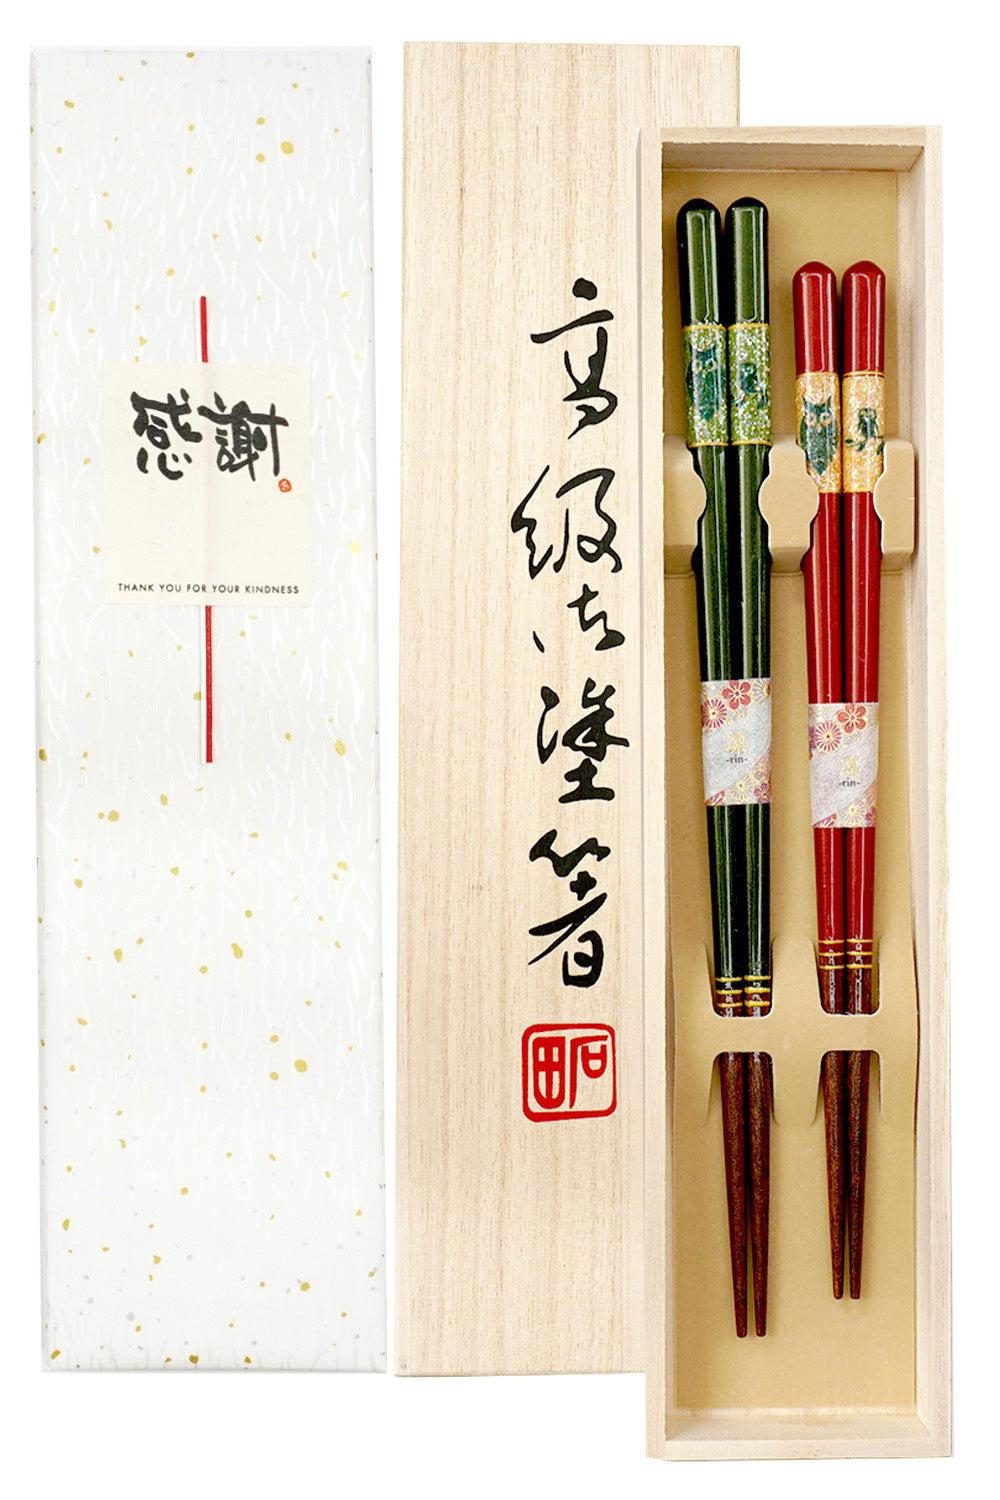 感謝
THANK YOU FOR YOUR KINDNESS
高級け塗箸
石田
凛
-rin-
凛
-rin-